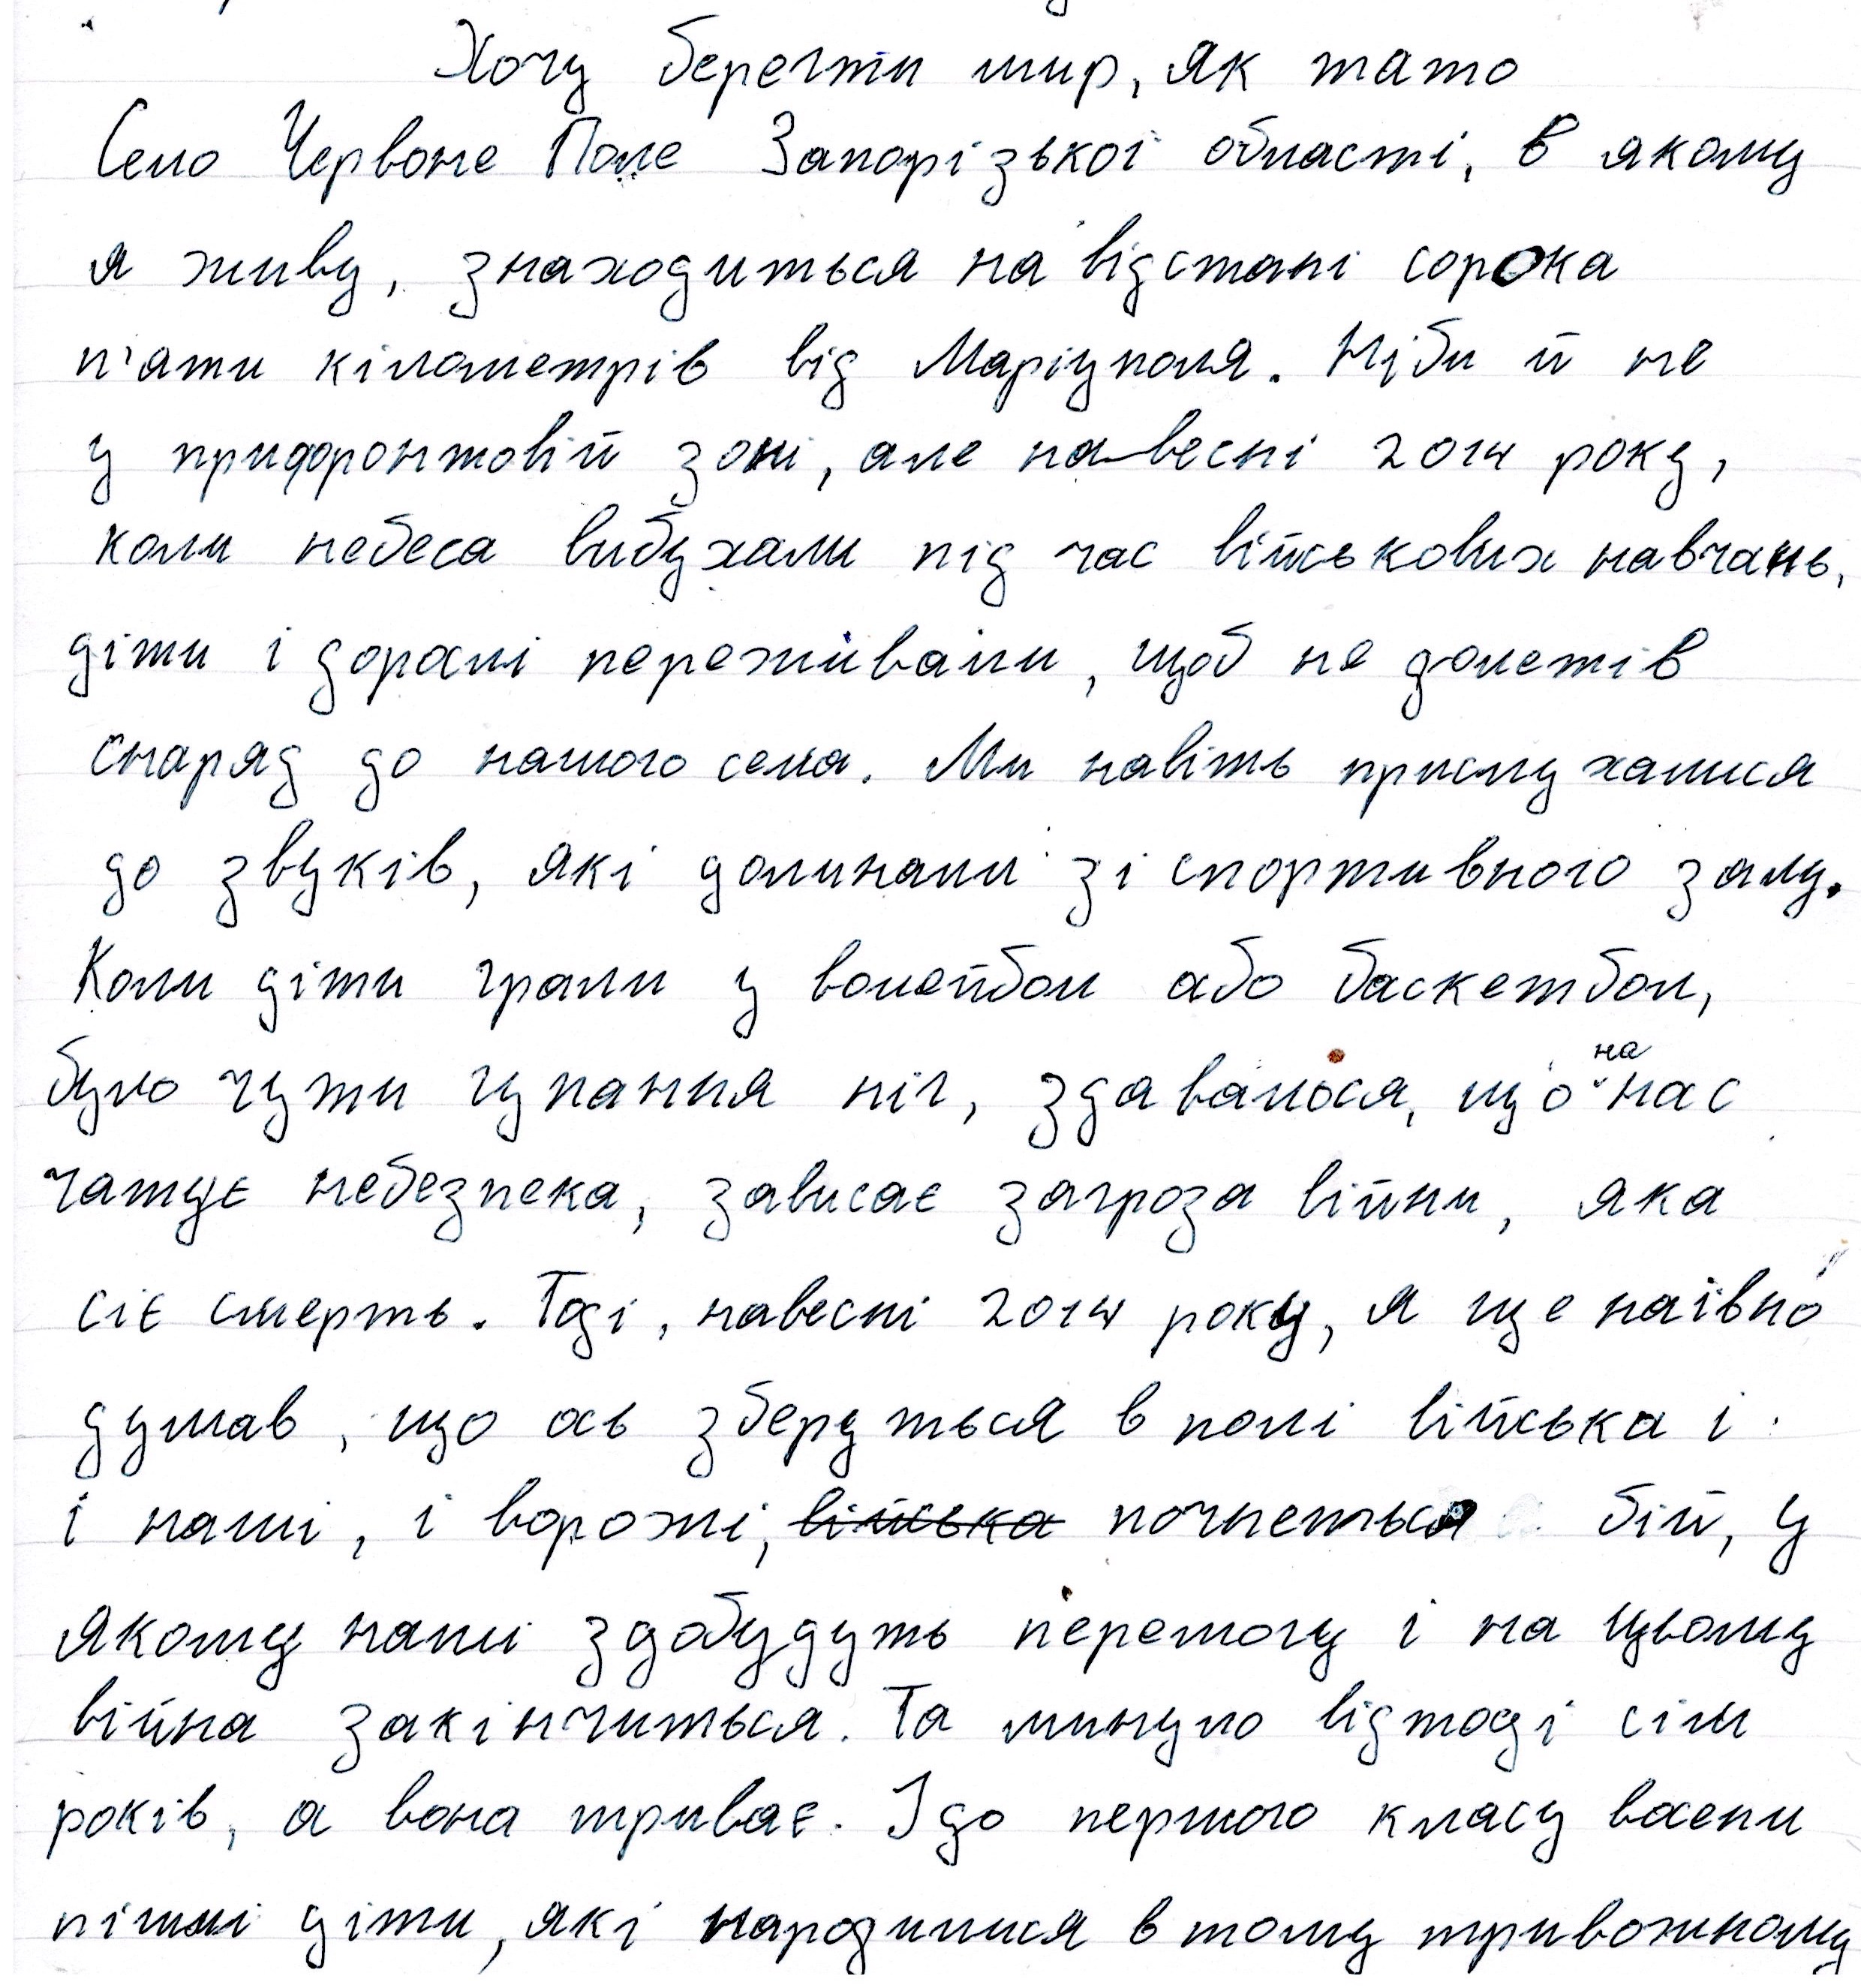 Хочу берегти мир, як тато
Село Червоне Поле Запорізької області, в якому
я живу, знаходиться на відстані сорока
п'яти кілометрів від Маріуполя. Ніби й не
у прифронтовій зоні, але навесні 2014 року,
коли небеса вибухали під час військових навчань,
діти і дорослі переживали, щоб не долетів
снаряд до нашого села. Ми навіть прислухалися
до звуків, які долинали зі спортивного залу.
Коли діти грали у волейбол або баскетбол,
було чути гупання ніг, здавалося, що на нас
чатує небезпека, зависає загроза війни, яка
сіє смерть. Тоді, навесні 2014 року, я ще наївно
думав, що ось зберуться в полі війська і
і наші, і ворожі, війська почнеться бій, у
якому наші здобудуть перемогу і на цьому
війна закінчиться. Та минуло відтоді сім
років, а вона триває. І до першого класу восени
пішли діти, які народилися в тому тривожному